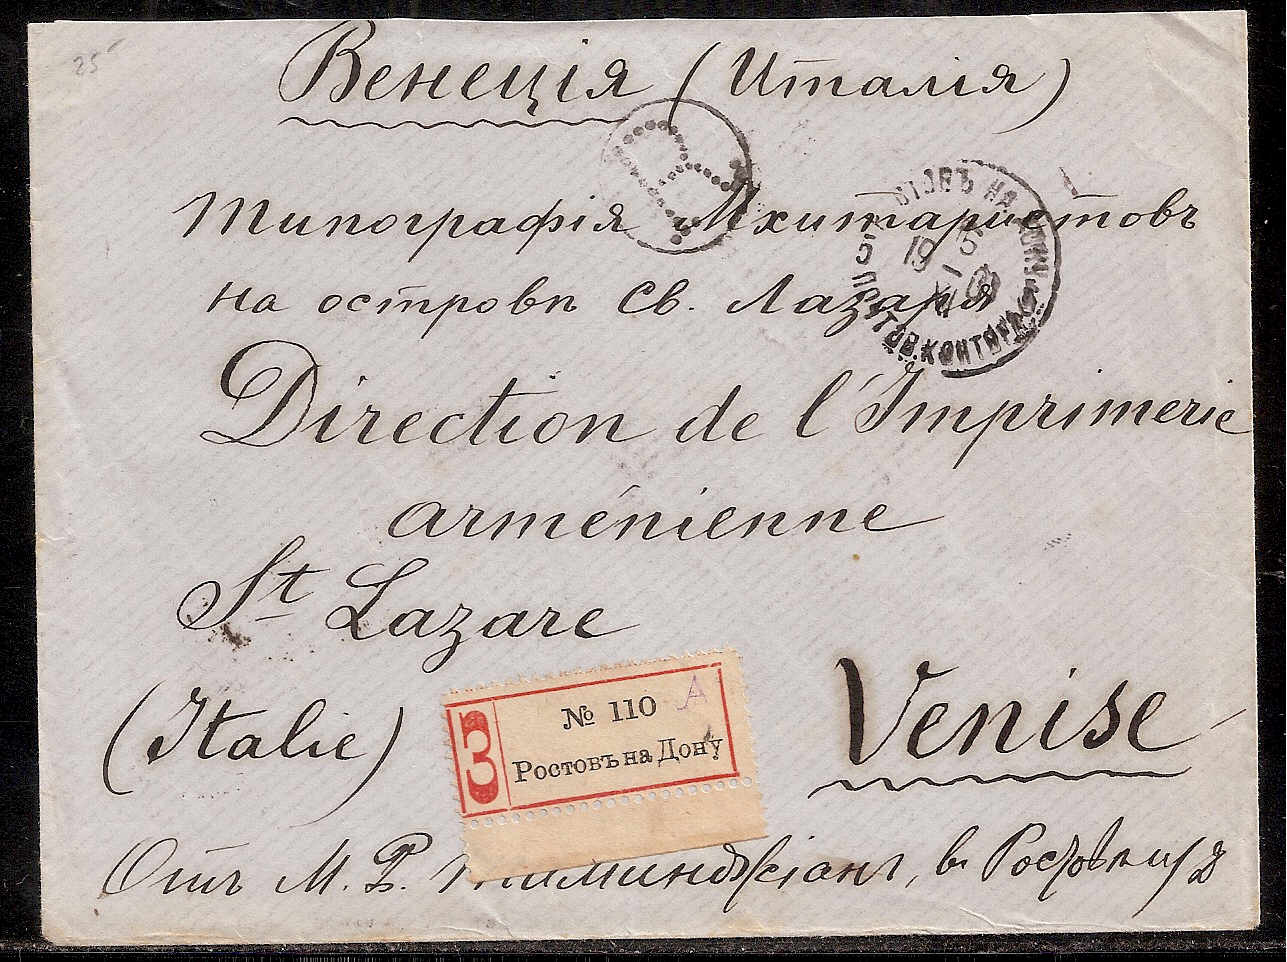 25
Венеція (Италія)
R
Типографія Мхитаристовъ
на островѣ Св. Лазаря
РОСТОВЪ НА ДОНУ
19 5
XI 03
ПОЧТОВ. КОНТОРА
Direction de l'Imprimerie
arménienne
St Lazare
(Italie)
Venise
№ 110 А
З
Ростовъ на Дону
Отъ М. Р. въ Ростовѣ н/Д